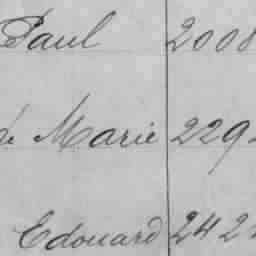 Paul 2008
Marie 229
Edouard 242